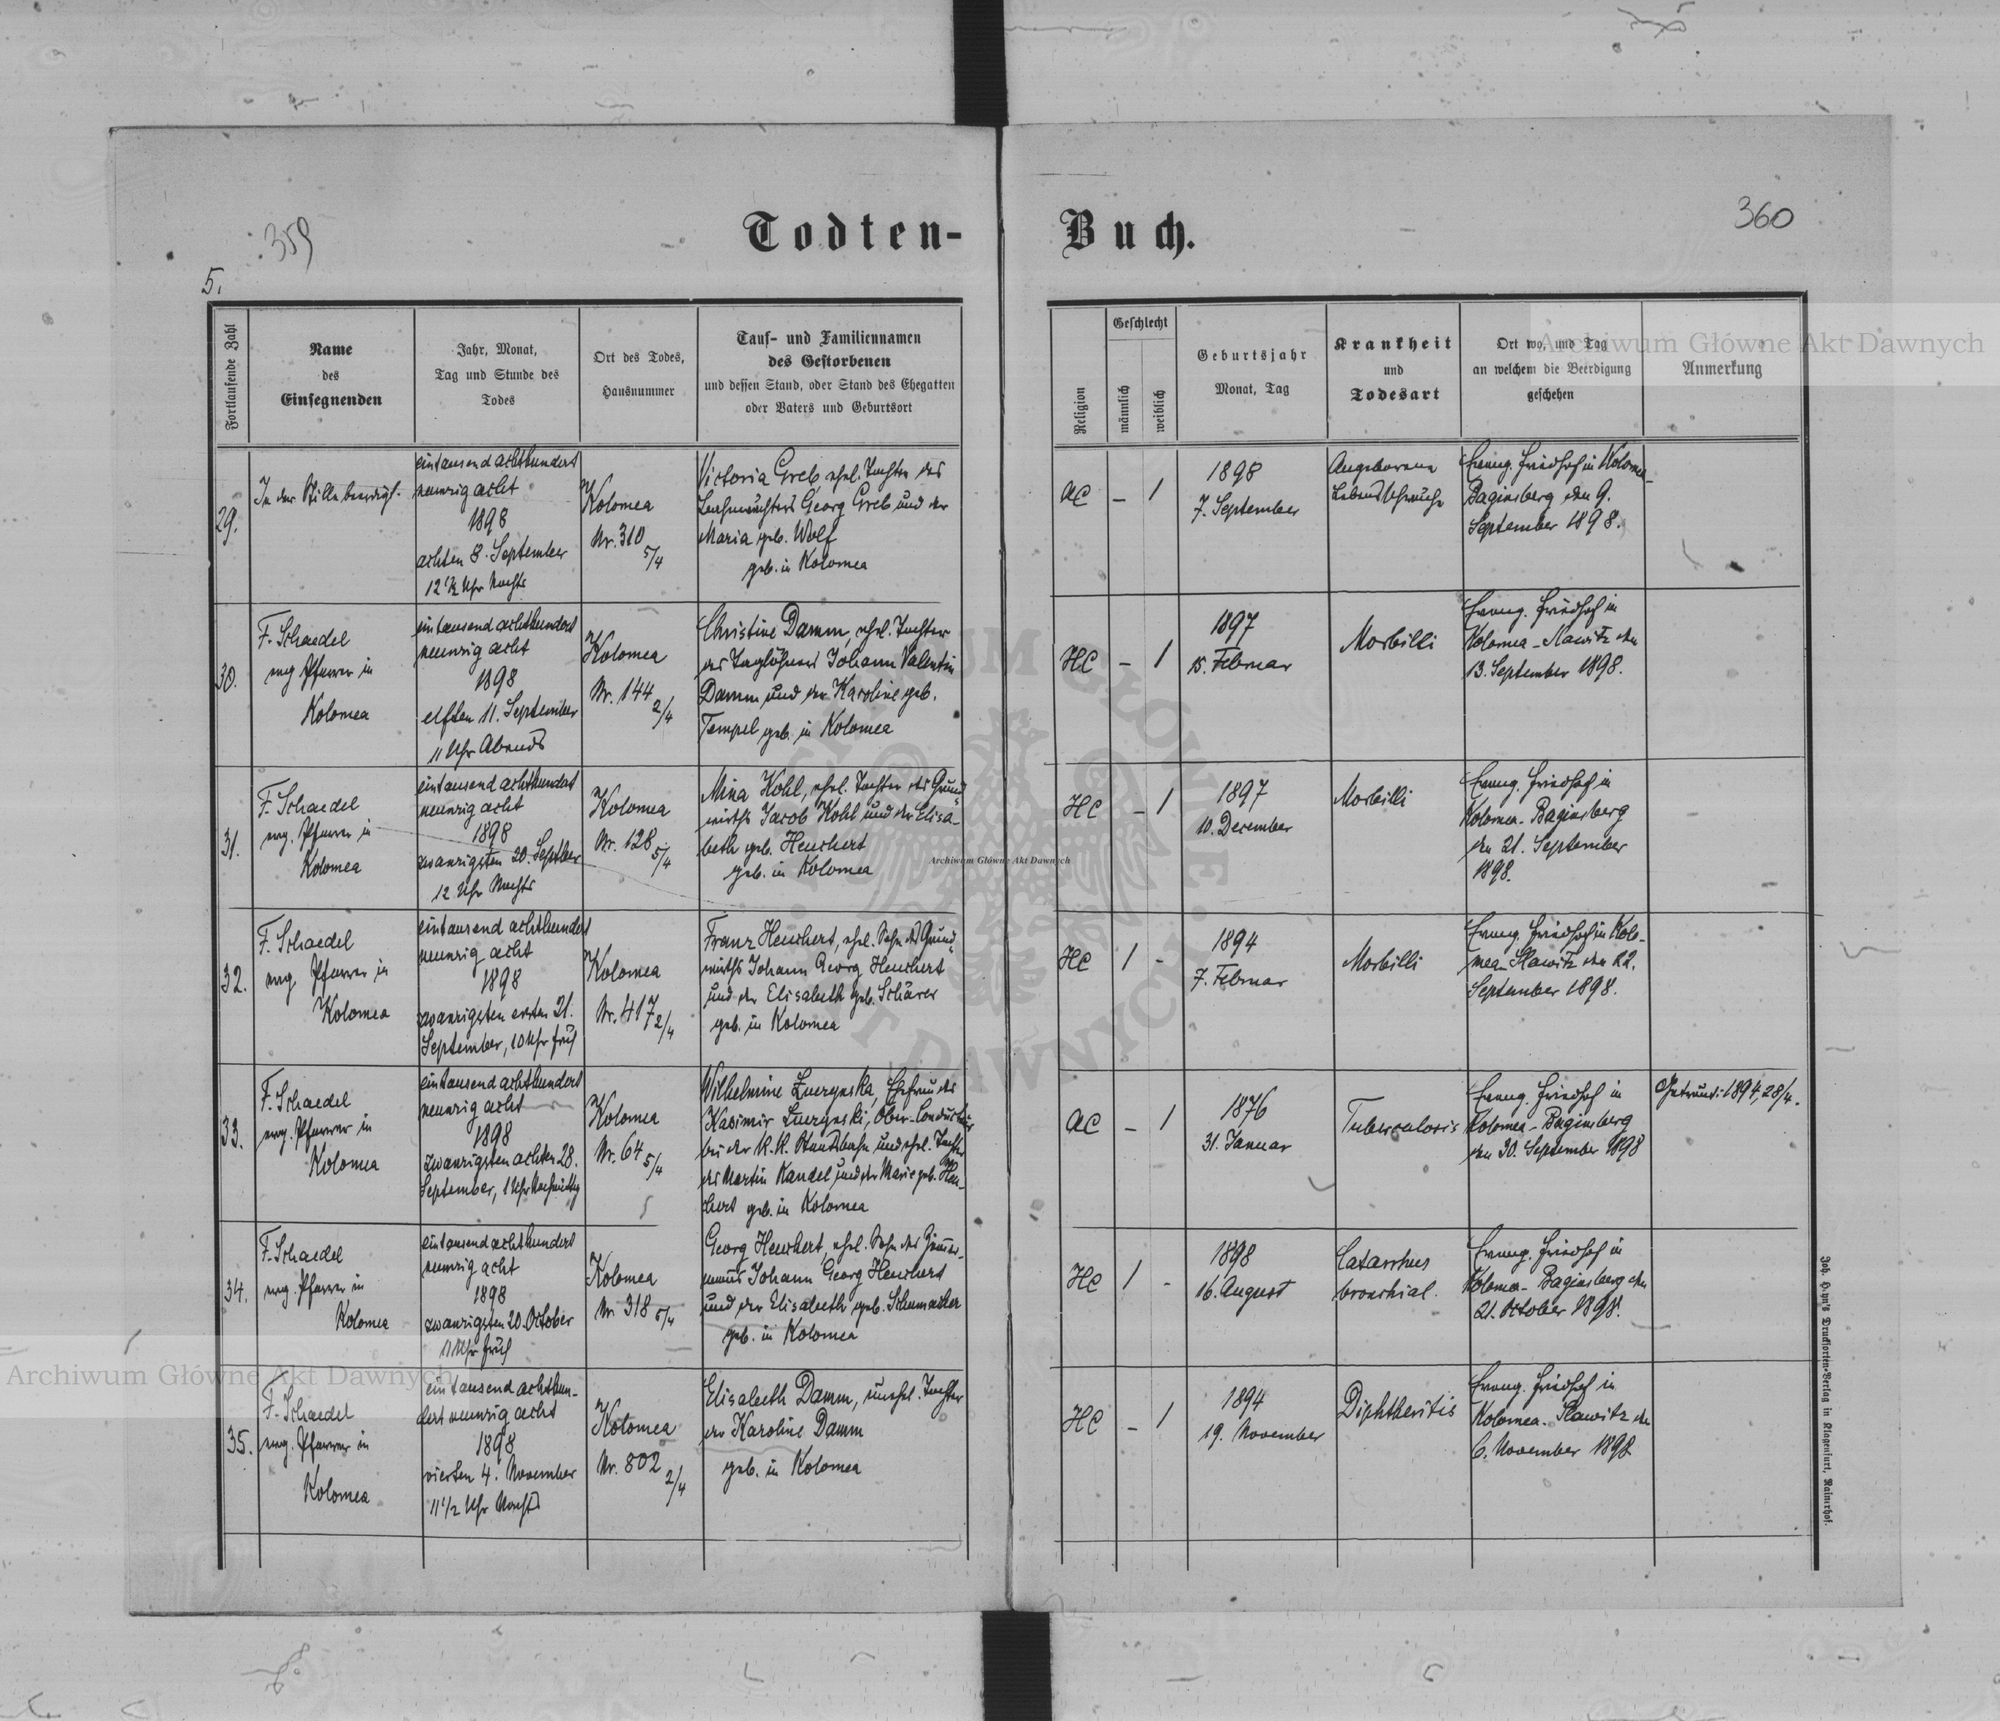 359
360
Todten-Buch.
5.
Fortlaufende Zahl
Name
des
Einsegnenden
Jahr, Monat,
Tag und Stunde des
Todes
Ort des Todes,
Hausnummer
Tauf- und Familiennamen
des Gestorbenen
und dessen Stand, oder Stand des Ehegatten
oder Vaters und Geburtsort
Religion
Geschlecht
männlich
weiblich
Geburtsjahr
Monat, Tag
Krankheit
und
Todesart
Ort wo, und Tag
an welchem die Beerdigung
geschehen
Anmerkung
29.
In der Stille beerdigt.
eintausend achthundert
neunzig acht
1898
achten 8. September
12 1/2 Uhr Nachts
Kolomea
Nr. 310 5/4
Victoria Greb, ehel. Tochter des
Georg Greb und der
Maria geb. Wolf
geb. in Kolomea
AC
–
1
1898
7. September
Angeborene
Lebensschwäche
Evang. Friedhof in Kolomea-
Baginsberg den 9.
September 1898.
30.
F. Schaedel
evg. Pfarrer in
Kolomea
eintausend achthundert
neunzig acht
1898
elften 11. September
11 Uhr Abends
Kolomea
Nr. 144 2/4
Christine Damm, ehel. Tochter
des Taglöhners Johann Valentin
Damm und der Karoline geb.
Tempel geb. in Kolomea
HC
–
1
1897
15. Februar
Morbilli
Evang. Friedhof in
Kolomea-Slawitz den
13. September 1898.
31.
F. Schaedel
evg. Pfarrer in
Kolomea
eintausend achthundert
neunzig acht
1898
zwanzigsten 20. Septber
12 Uhr Nachts
Kolomea
Nr. 128 5/4
Mina Kohl, ehel. Tochter des Grund-
wirths Jacob Kohl und der Elisa-
beth geb. Heuchert
geb. in Kolomea
HC
–
1
1897
10. December
Morbilli
Evang. Friedhof in
Kolomea-Baginsberg
den 21. September
1898.
32.
F. Schaedel
evg. Pfarrer in
Kolomea
eintausend achthundert
neunzig acht
1898
zwanzigsten ersten 21.
September, 10 Uhr früh
Kolomea
Nr. 417 2/4
Franz Heuchert, ehel. Sohn des Grund-
wirths Johann Georg Heuchert
und der Elisabeth geb. Schärer
geb. in Kolomea
HC
1
-
1894
7. Februar
Morbilli
Evang. Friedhof in Kolo-
mea-Slawitz den 22.
September 1898.
33.
F. Schaedel
evg. Pfarrer in
Kolomea
eintausend achthundert
neunzig acht
1898
zwanzigsten achten 28.
September, 1 Uhr Nachmittag
Kolomea
Nr. 64 5/4
Wilhelmine Ehefrau des
Kasimir Ober-Conducteur
bei der K. K. Staatsbahn und ehel. Tochter
des Martin Kandel und der Marie geb. Heu-
chert geb. in Kolomea
AC
–
1
1876
31. Januar
Tuberculosis
Evang. Friedhof in
Kolomea-Baginsberg
den 30. September 1898
Getraut: 1894, 28/4.
34.
F. Schaedel
evg. Pfarrer in
Kolomea
eintausend achthundert
neunzig acht
1898
zwanzigsten 20. October
11 Uhr früh
Kolomea
Nr. 318 5/4
Georg Heuchert, ehel. Sohn des Zimmer-
manns Johann Georg Heuchert
und der Elisabeth geb. Schumacher
geb. in Kolomea
HC
1
-
1898
16. August
Catarrhus
bronchial.
Evang. Friedhof in
Kolomea-Baginsberg den
21. October 1898.
35.
F. Schaedel
evg. Pfarrer in
Kolomea
eintausend achthun-
dert neunzig acht
1898
vierten 4. November
11 1/2 Uhr Nachts
Kolomea
Nr. 802 2/4
Elisabeth Damm, unehel. Tochter
der Karoline Damm
geb. in Kolomea
HC
–
1
1894
19. November
Diphtheritis
Evang. Friedhof in
Kolomea-Slawitz den
6. November 1898
Joh. Heyn's Drucksorten-Verlag in Klagenfurt, Rainerhof.
Archiwum Główne Akt Dawnych
Archiwum Główne Akt Dawnych
Archiwum Główne Akt Dawnych